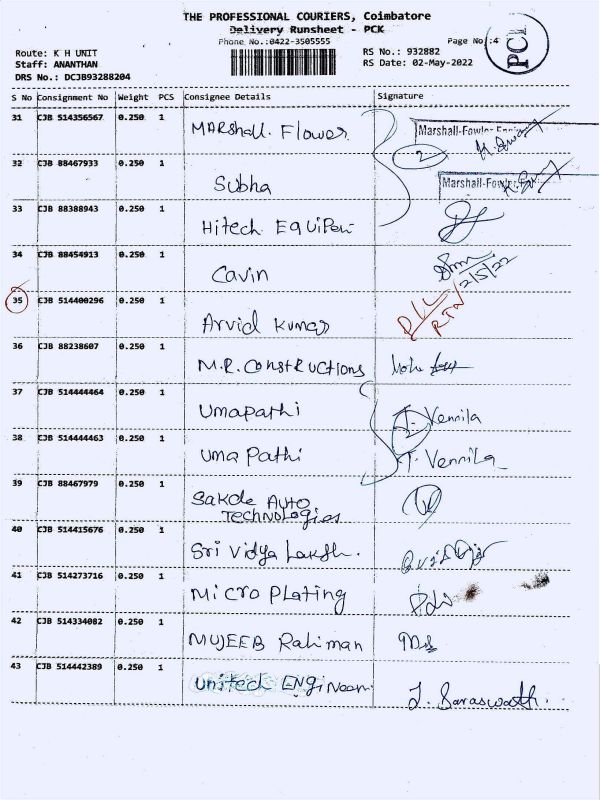 THE PROFESSIONAL COURIERS, Coimbatore
Delivery Runsheet - PCK
Phone No.:0422-3505555
Page No.:4
PCK
Route: K H UNIT
RS No.: 932882
Staff: ANANTHAN
RS Date: 02-May-2022
DRS No.: DCJB93288204
S No Consignment No Weight PCS Consignee Details Signature
31 CJB 514356567 0.250 1 Marshall. Flower
Marshall-Fowler
2
32 CJB 88467933 0.250 1 Subha
Marshall-Fowler
33 CJB 88388943 0.250 1 Hitech Equipem
34 CJB 88454913 0.250 1 Cavin
2/5/22
35 CJB 514400296 0.250 1 Arvid Kumar
D/L RTN
36 CJB 88238607 0.250 1 M.R. Constructions
37 CJB 514444464 0.250 1 Umapathi T. Vennila
38 CJB 514444463 0.250 1 Uma Pathi T. Vennila
39 CJB 88467979 0.250 1 Sakde Auto
Technologies
40 CJB 514415676 0.250 1 Sri Vidya Laksh.
41 CJB 514273716 0.250 1 Micro Plating
42 CJB 514334082 0.250 1 MUJEEB Rahiman
43 CJB 514442389 0.250 1 Unitech Engineer J. Saraswathi.